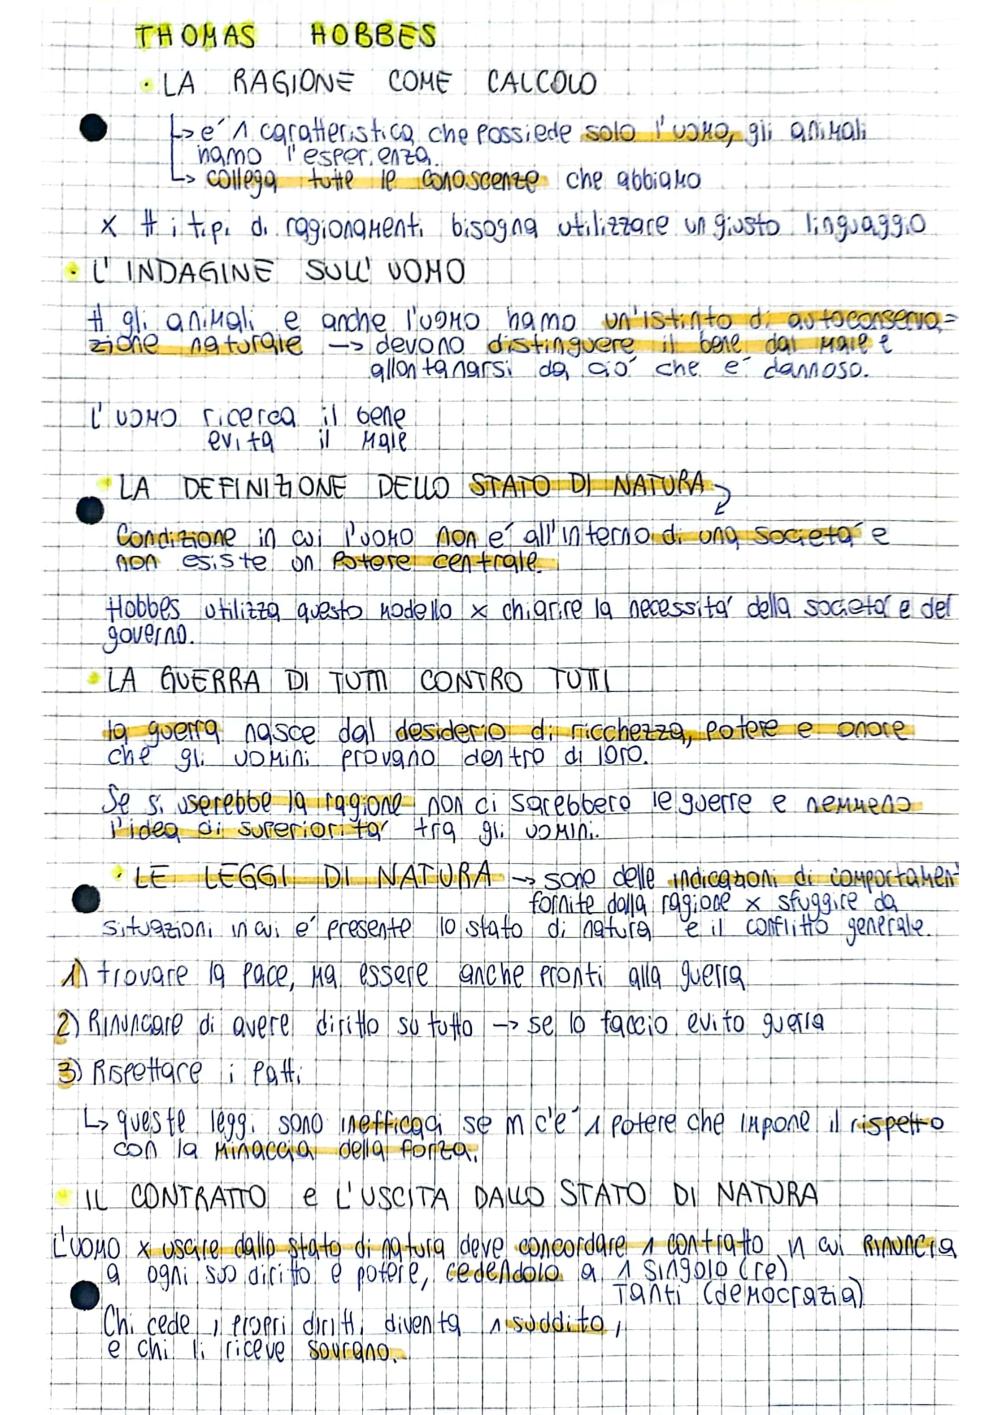 THOMAS HOBBES
• LA RAGIONE COME CALCOLO
↳ e' 1 caratteristica che possiede solo l'uomo, gli animali
hanno l'esperienza.
↳ collega tutte le conoscenze che abbiamo
x # i tipi di ragionamenti bisogna utilizzare un giusto linguaggio
• L'INDAGINE SULL'UOMO
# gli animali e anche l'uomo hanno un'istinto di autoconserva=
zione naturale → devono distinguere il bene dal male e
allontanarsi da cio' che e' dannoso.
L'uomo ricerca il bene
evita il male
• LA DEFINIZIONE DELLO STATO DI NATURA
Condizione in cui l'uomo non e' all'interno di una societa' e
non esiste un potere centrale.
Hobbes utilizza questo modello x chiarire la necessita' della societa' e del
governo.
• LA GUERRA DI TUTTI CONTRO TUTTI
la guerra nasce dal desiderio di ricchezza, potere e onore
che gli uomini provano dentro di loro.
Se si userebbe la ragione non ci sarebbero le guerre e nemmeno
l'idea di superiorita' tra gli uomini.
• LE LEGGI DI NATURA → sono delle indicazioni di comportamen
fornite dalla ragione x sfuggire da
situazioni in cui e' presente lo stato di natura e il conflitto generale.
1) trovare la pace, ma essere anche pronti alla guerra
2) Rinunciare di avere diritto su tutto → se lo faccio evito guerra
3) Rispettare i patti
↳ queste leggi sono inefficaci se n c'e' 1 potere che impone il rispetto
con la minaccia della forza.
• IL CONTRATTO e L'USCITA DALLO STATO DI NATURA
L'UOMO x uscire dallo stato di natura deve concordare 1 contratto in cui RINUNCIA
a ogni suo diritto e potere, cedendolo a 1 singolo (re)
Tanti (democrazia)
Chi cede i propri diritti diventa 1 suddito,
e chi li riceve sovrano.